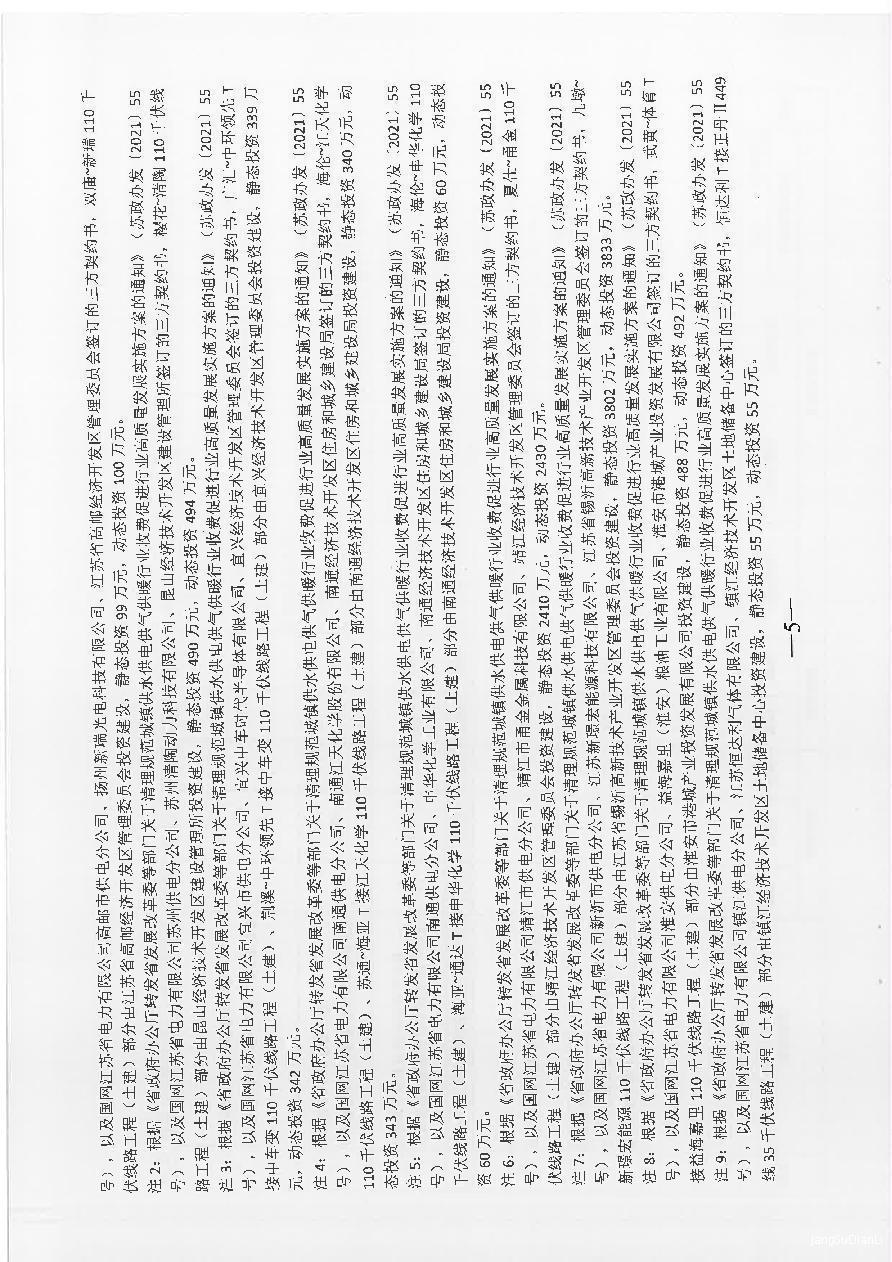 号），以及国网江苏省电力有限公司高邮市供电分公司、扬州新瑞光电科技有限公司、江苏省高邮经济开发区管理委员会签订的三方契约书，双庙~新瑞 110 千
伏线路工程（土建）部分由江苏省高邮经济开发区管理委员会投资建设，静态投资 99 万元，动态投资 100 万元。
注 2：根据《省政府办公厅转发省发展改革委等部门关于清理规范城镇供水供电供气供暖行业收费促进行业高质量发展实施方案的通知》（苏政办发〔2021〕55
号），以及国网江苏省电力有限公司苏州供电分公司、苏州清陶动力科技有限公司、昆山经济技术开发区建设管理所签订的三方契约书，樱花~清陶 110 千伏线
路工程（土建）部分由昆山经济技术开发区建设管理所投资建设，静态投资 490 万元，动态投资 494 万元。
注 3：根据《省政府办公厅转发省发展改革委等部门关于清理规范城镇供水供电供气供暖行业收费促进行业高质量发展实施方案的通知》（苏政办发〔2021〕55
号），以及国网江苏省电力有限公司宜兴市供电分公司、宜兴中车时代半导体有限公司、宜兴经济技术开发区管理委员会签订的三方契约书，广汇~中环领先 T
接中车变 110 千伏线路工程（土建）、荆溪~中环领先 T 接中车变 110 千伏线路工程（土建）部分由宜兴经济技术开发区管理委员会投资建设，静态投资 339 万
元，动态投资 342 万元。
注 4：根据《省政府办公厅转发省发展改革委等部门关于清理规范城镇供水供电供气供暖行业收费促进行业高质量发展实施方案的通知》（苏政办发〔2021〕55
号），以及国网江苏省电力有限公司南通供电分公司、南通江天化学股份有限公司、南通经济技术开发区住房和城乡建设局签订的三方契约书，海伦~江天化学
110 千伏线路工程（土建）、苏通~海亚 T 接江天化学 110 千伏线路工程（土建）部分由南通经济技术开发区住房和城乡建设局投资建设，静态投资 340 万元，动
态投资 343 万元。
注 5：根据《省政府办公厅转发省发展改革委等部门关于清理规范城镇供水供电供气供暖行业收费促进行业高质量发展实施方案的通知》（苏政办发〔2021〕55
号），以及国网江苏省电力有限公司南通供电分公司、申华化学工业有限公司、南通经济技术开发区住房和城乡建设局签订的三方契约书，海伦~申华化学 110
千伏线路工程（土建）、海亚~通达 T 接申华化学 110 千伏线路工程（土建）部分由南通经济技术开发区住房和城乡建设局投资建设，静态投资 60 万元，动态投
资 60 万元。
注 6：根据《省政府办公厅转发省发展改革委等部门关于清理规范城镇供水供电供气供暖行业收费促进行业高质量发展实施方案的通知》（苏政办发〔2021〕55
号），以及国网江苏省电力有限公司靖江市供电分公司、靖江市甬金金属科技有限公司、靖江经济技术开发区管理委员会签订的三方契约书，夏仕~甬金 110 千
伏线路工程（土建）部分由靖江经济技术开发区管理委员会投资建设，静态投资 2410 万元，动态投资 2430 万元。
注 7：根据《省政府办公厅转发省发展改革委等部门关于清理规范城镇供水供电供气供暖行业收费促进行业高质量发展实施方案的通知》（苏政办发〔2021〕55
号），以及国网江苏省电力有限公司新沂市供电分公司、江苏新璟宏能源科技有限公司、江苏省锡沂高新技术产业开发区管理委员会签订的三方契约书，九墩~
新璟宏能源 110 千伏线路工程（土建）部分由江苏省锡沂高新技术产业开发区管理委员会投资建设，静态投资 3802 万元，动态投资 3833 万元。
注 8：根据《省政府办公厅转发省发展改革委等部门关于清理规范城镇供水供电供气供暖行业收费促进行业高质量发展实施方案的通知》（苏政办发〔2021〕55
号），以及国网江苏省电力有限公司淮安供电分公司、益海嘉里（淮安）粮油工业有限公司、淮安市港城产业投资发展有限公司签订的三方契约书，武黄~体育 T
接益海嘉里 110 千伏线路工程（土建）部分由淮安市港城产业投资发展有限公司投资建设，静态投资 488 万元，动态投资 492 万元。
注 9：根据《省政府办公厅转发省发展改革委等部门关于清理规范城镇供水供电供气供暖行业收费促进行业高质量发展实施方案的通知》（苏政办发〔2021〕55
号），以及国网江苏省电力有限公司镇江供电分公司、江苏恒达利气体有限公司、镇江经济技术开发区土地储备中心签订的三方契约书，恒达利 T 接正丹Ⅱ449
线 35 千伏线路工程（土建）部分由镇江经济技术开发区土地储备中心投资建设，静态投资 55 万元，动态投资 55 万元。
—5—
jangSuDianLi